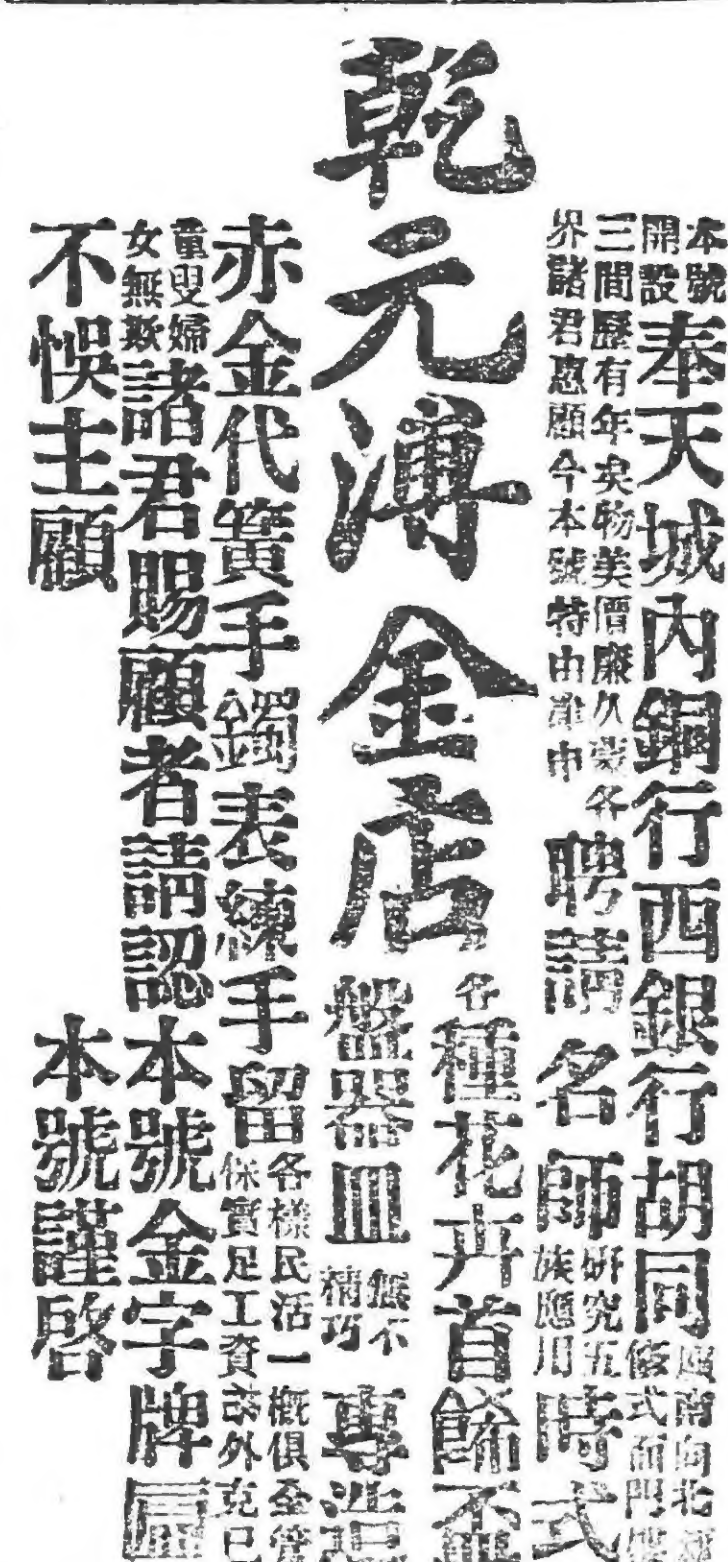 本號開設奉天城內銅行西銀行胡同
三間歷有年矣物美價廉久蒙各界諸君惠顧今本號特由津申聘請名師研究五族應用時式
各種花卉首餙
乾元溥金店
盤器皿無不精巧專造
赤金代簧手鐲表練手留各樣民活一概俱全管保實足工資格外克己
童叟婦女無欺諸君賜顧者請認本號金字牌匾
不悞主顧
本號謹啓